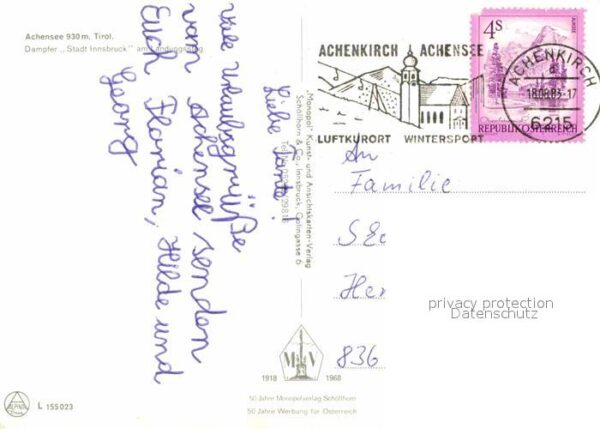 Achensee 930 m. Tirol.
Dampfer „Stadt Innsbruck" am Landungssteg
Liebe Tante!
viele Urlaubsgrüße
vom Achensee senden
Euch Florian, Hilde und
Georg
„Monopol" Kunst- und Ansichtskarten-Verlag
Schöllhorn & Co., Innsbruck, Gölingasse 6
ACHENKIRCH ACHENSEE
LUFTKURORT WINTERSPORT
4S
REPUBLIK ÖSTERREICH
ACHENKIRCH
a
18.08.83-17
6215
An
Familie
He
836
privacy protection
Datenschutz
M V
1918 1968
50 Jahre Monopolverlag Schöllhorn
50 Jahre Werbung für Österreich
ALPINA
L 155023